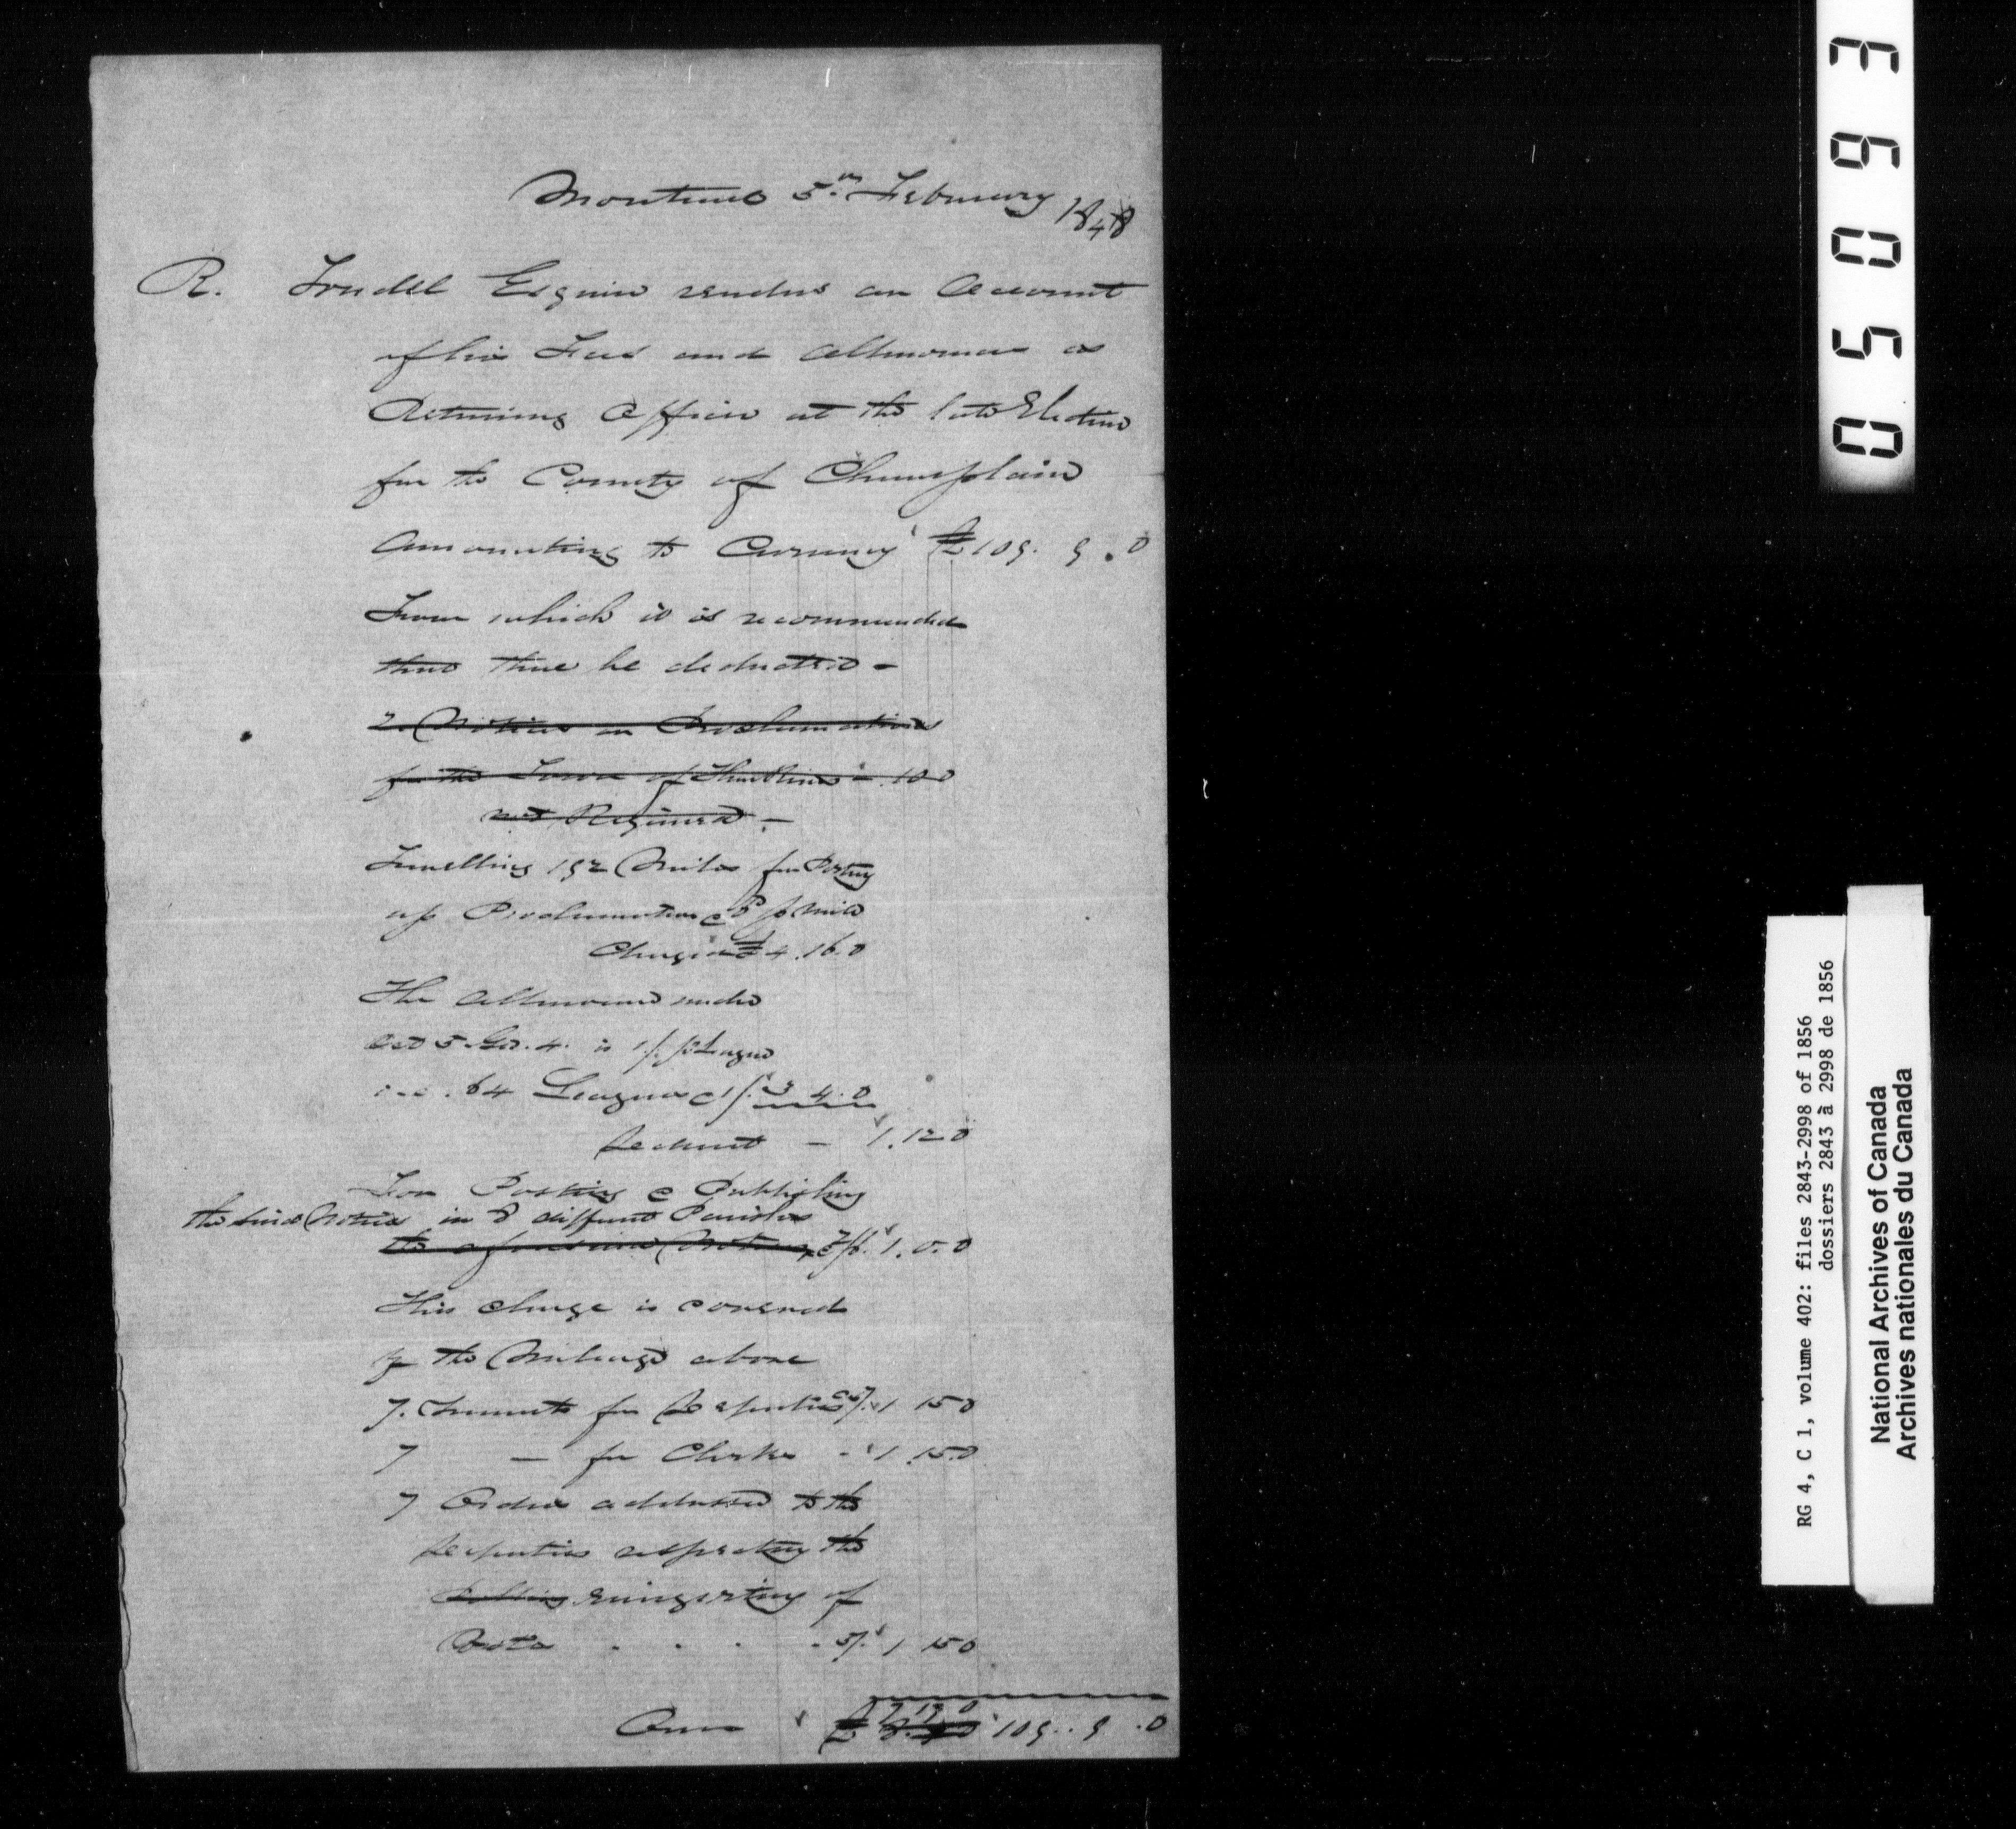 Montreal 5th February 1848
R. Trudel Esquire renders an Account
of his Fees and Allowances as
Returning Officer at the late Election
for the County of Champlain
Amounting to Currency £109. 9. 0
From which it is recommended
that there be deducted -
2 Notices on Proclamations
for the Town of - 10 0
not Required -
Travelling 192 Miles for Posting
up Proclamations @ 6d p mile
Charged £4. 16. 0
The Allowance under
Act 5 Geo. 4. is 1/. p League
i.e. 64 Leagues @ 1/. 3 4. 0
deduct - 1. 12 0
For Posting & Publishing
the said Notices in 8 different Parishes
the aforesaid Notices @ 2/6. 1. 0. 0
This charge is covered
by the Mileage above
7. Warrants for Deputies @ 5/. 1 15 0
7 — for Clerks - 1 15. 0
7 Orders addressed to the
Deputies respecting the
Polling registering of
Votes . . . . 5/. 1 15 0
Over £ 7 17 0 109. . 9 . 0
05093
RG 4, C 1, volume 402: files 2843-2998 of 1856
dossiers 2843 à 2998 de 1856
National Archives of Canada
Archives nationales du Canada